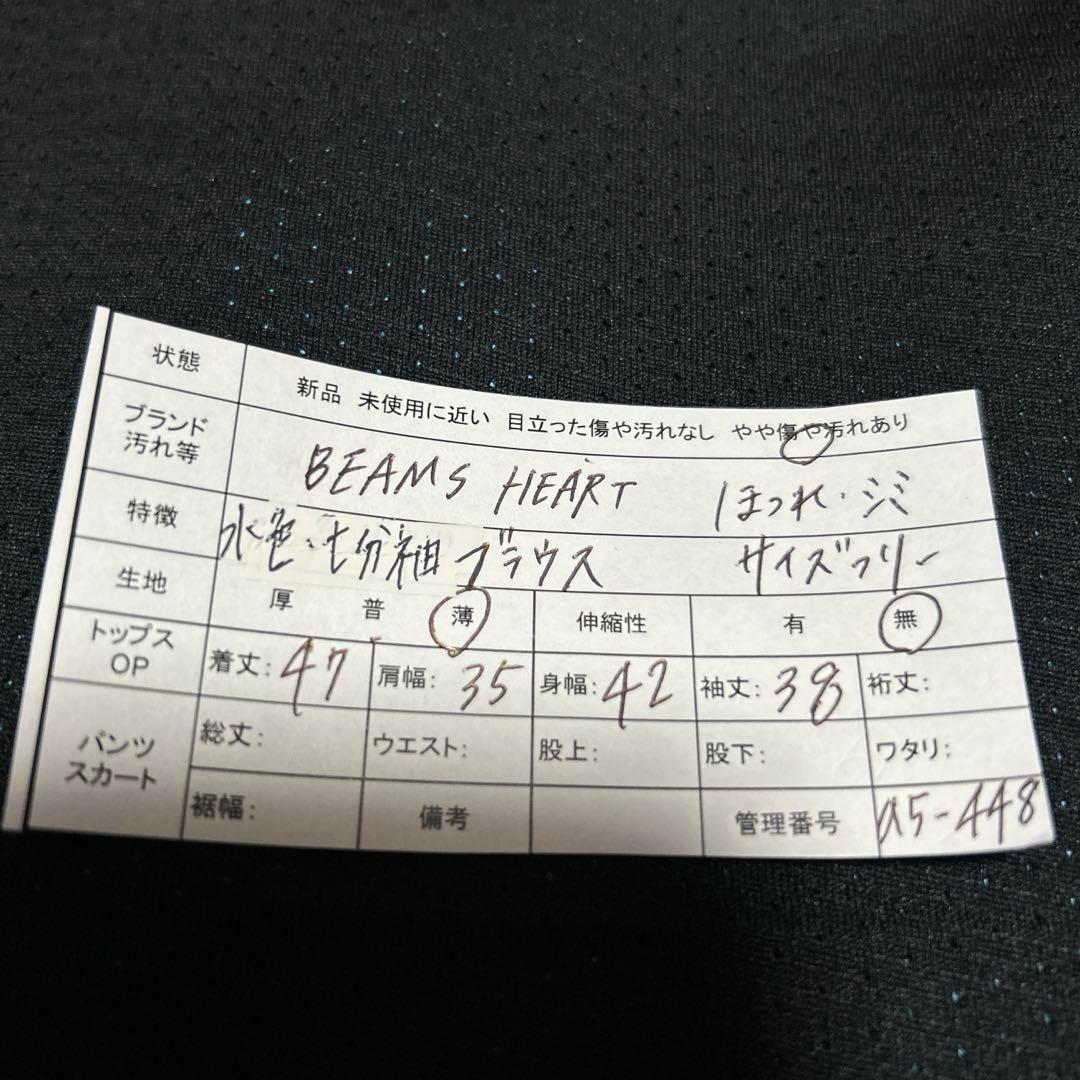 状態 新品 未使用に近い 目立った傷や汚れなし やや傷や汚れあり
ブランド 汚れ等 BEAMS HEART ほつれ・シミ
特徴 水色・七分袖 ブラウス サイズフリー
生地 厚 普 薄 伸縮性 有 無
トップス OP 着丈:47 肩幅:35 身幅:42 袖丈:38 裄丈:
パンツ スカート 総丈: ウエスト: 股上: 股下: ワタリ:
裾幅: 備考 管理番号 a5-448